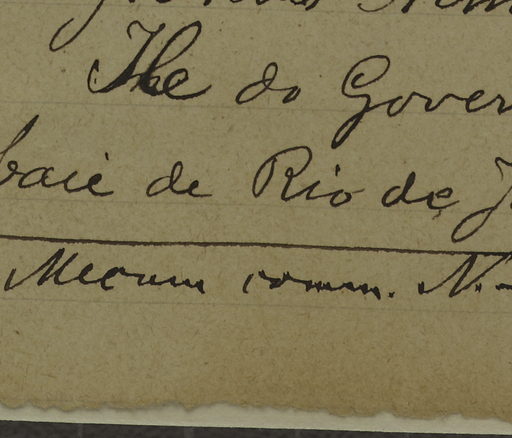 Ile do Gover
baie de Rio de J
Mecum comm. N.